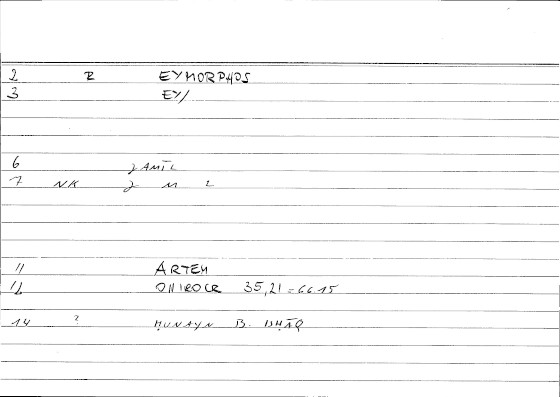 2 R EYMORPHOS
3 EY/
6 ǧAMĪL
7 NK ǧ M L
11 ARTEM
12 ONIROCR 35,21 = 66 15
14 ? ḤUNAYN B. ISḤĀQ